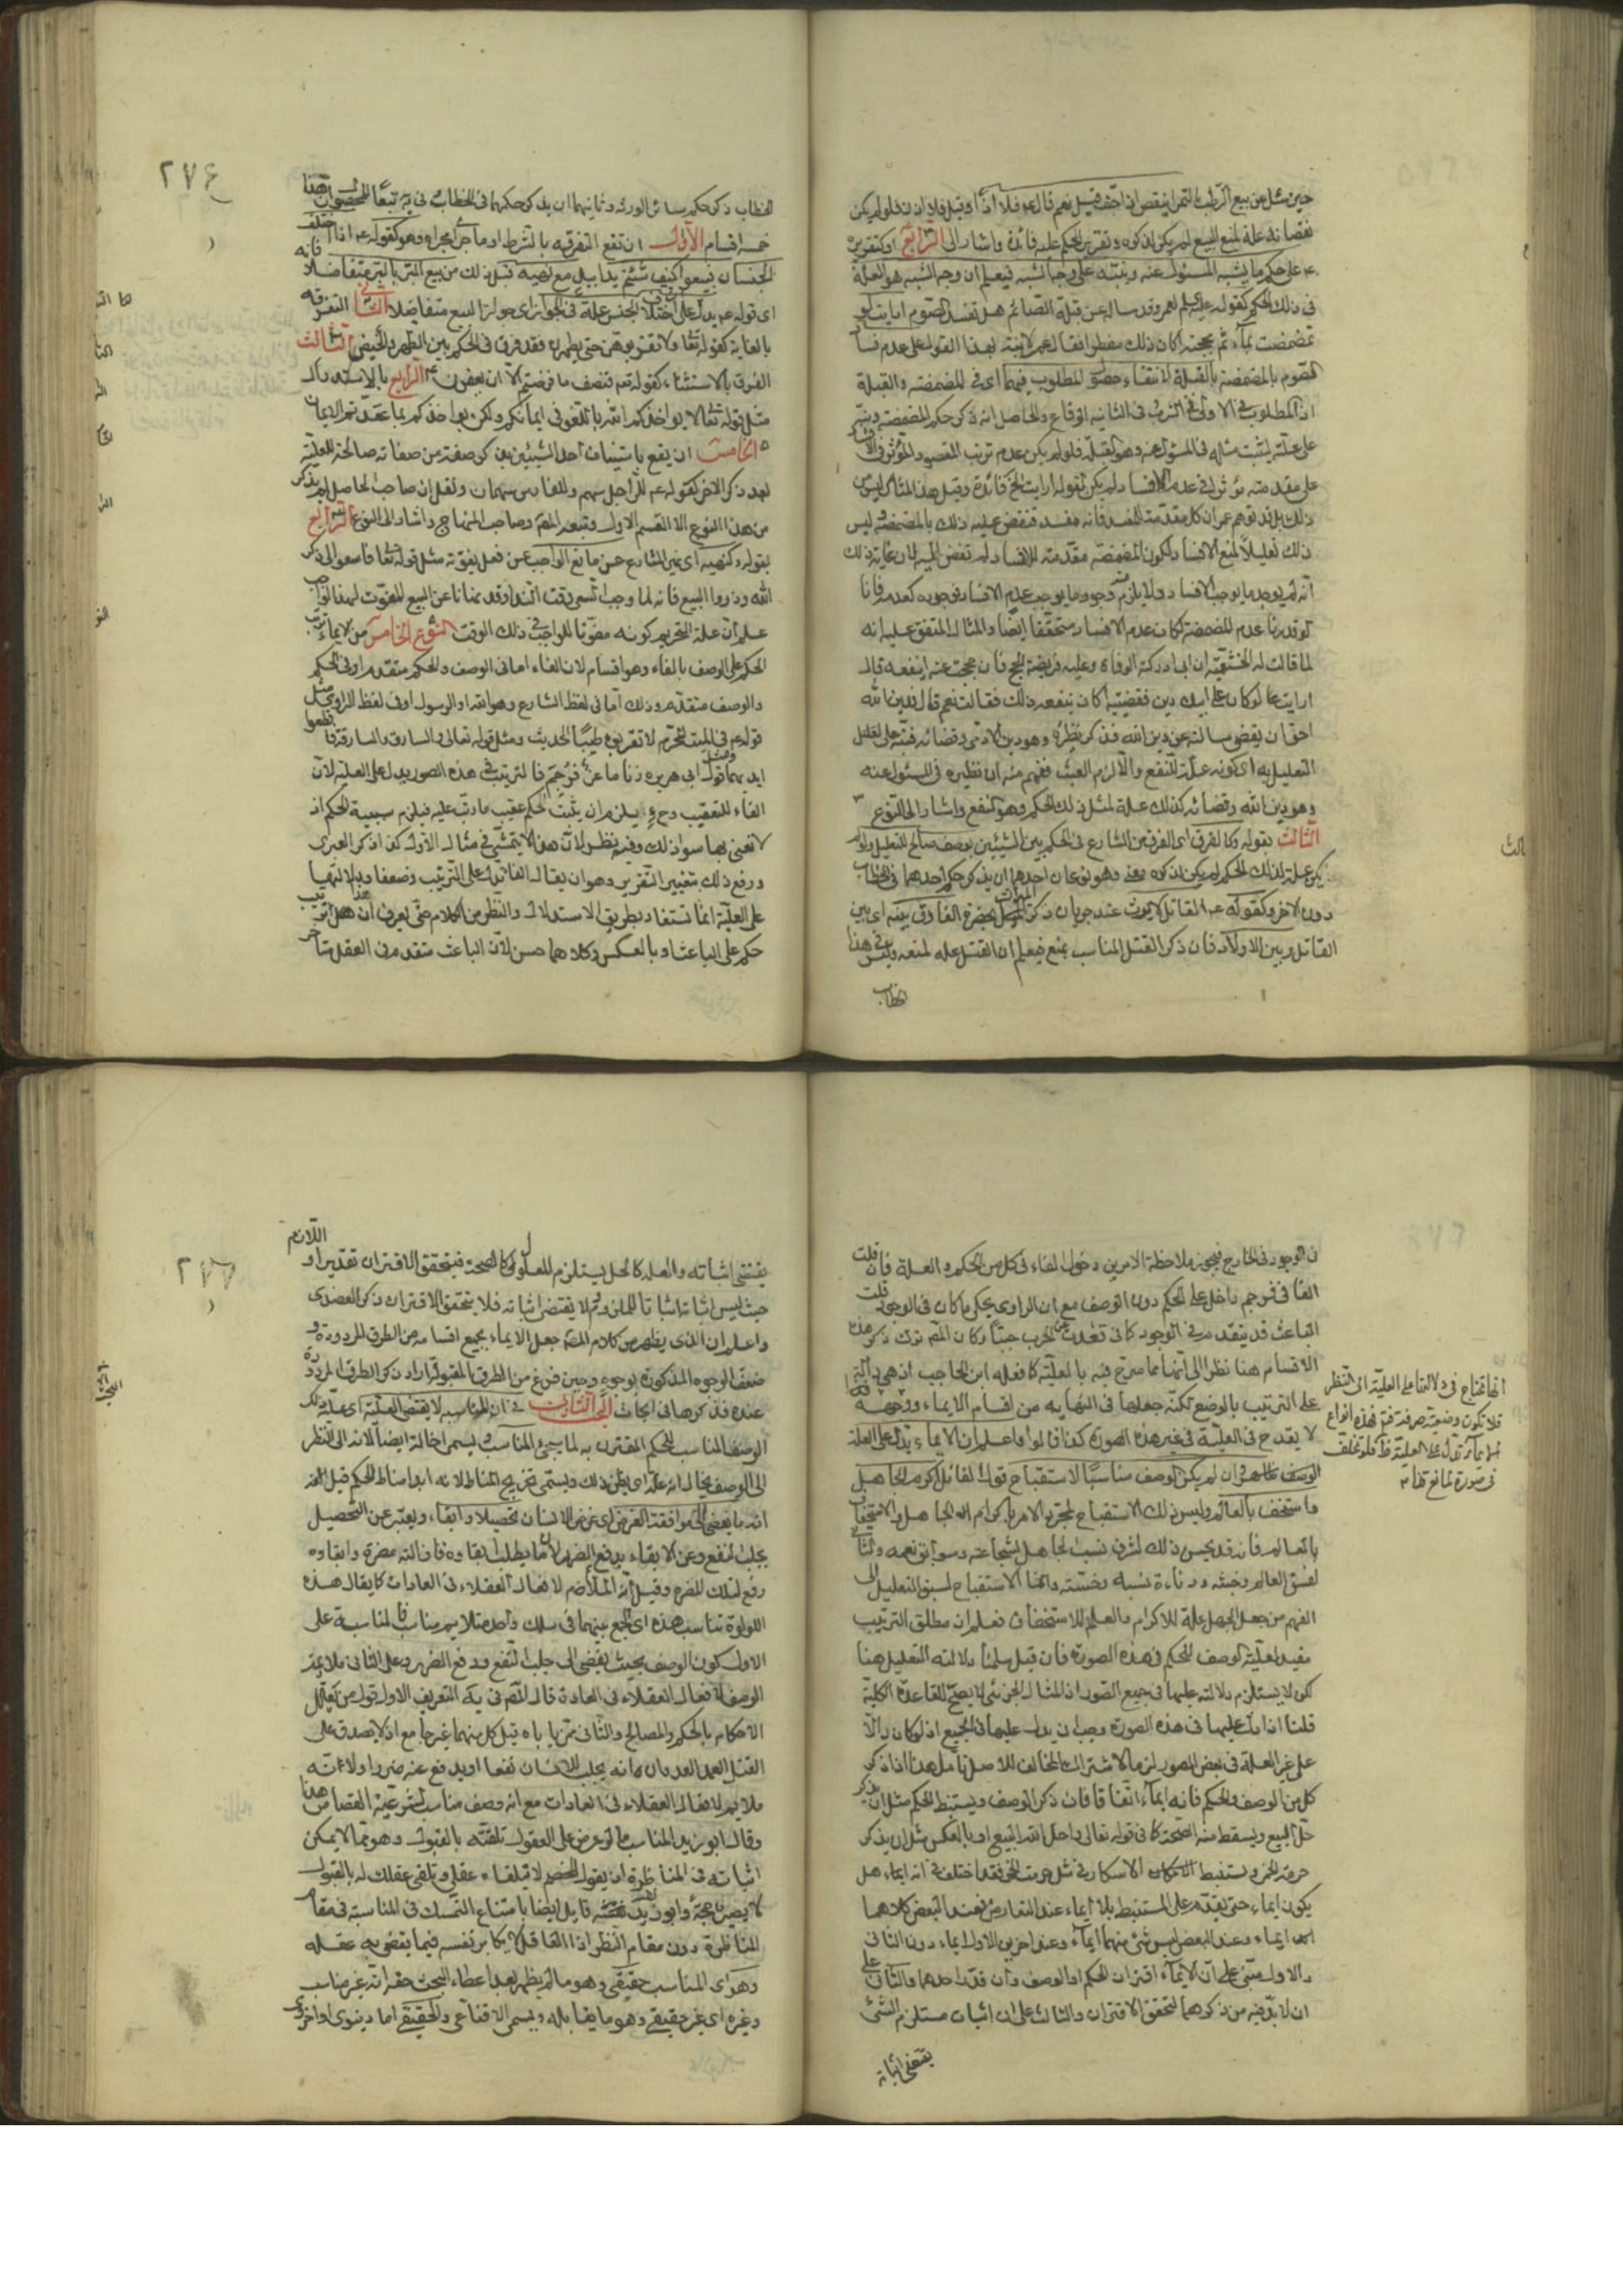 حين سئل عن بيع الرطب بالتمر اينقص اذا جف قيل نعم قال عم فلا اذا فلو لم يكن
نقصانه علة لمنع البيع لم يكن لذكره وتقرير الحكم عليه فائدة واشار الى الرابع
على حكم ما يشبه المسئول عنه وينبه على وجه الشبه فيعلم ان وجه الشبه هو العلة
في ذلك الحكم كقوله لعمر وقد ساله عن قبلة الصائم هل تفسد الصوم ارايت لو
تمضمضت بماء ثم مججته اكان ذلك مفطرا فقال عمر لا فنبه بهذا القول على عدم فساد
الصوم بالمضمضة والقبلة لانتفاء حصول المطلوب فيهما اى في المضمضة والقبلة
اذ المطلوب في الاولى الشرب وفي الثانية الوقاع والحاصل انه ذكر حكم المضمضة ونبه
على علته ليثبت مثله في المسئول عنه وهو القبلة فلو لم يكن عدم ترتب المقصود المؤثر في الافساد
على مقدمته مؤثرا في عدم الافساد لم يكن لقوله ارايت الخ فائدة وقيل هذا المثال ليس من
ذلك بل لما توهم عمر ان كل مقدمة للمفسد فانه مفسد فنقض عليه ذلك بالمضمضة وليس
ذلك تعليلا لمنع الافساد لكون المضمضة مقدمة للافساد لم تفض اليه لان غاية ذلك
انه لم يوجد ما يوجب الافساد ولا يلزم منه وجود ما يوجب عدم الافساد فوجوده كعدمه فانا
لو قدرنا عدم المضمضة لكان عدم الافساد متحققا ايضا والمثال المتفق عليه انه
لما قالت له الخثعمية ان ابي ادركته الوفاة وعليه فريضة الحج فان حججت عنه اينفعه قال
ارايت لو كان على ابيك دين فقضيتيه اكان ينفعه ذلك فقالت نعم قال فدين الله
احق ان يقضى سالته عن دين الله فذكر نظيره وهو دين الادمي وقضائه فنبه على
التعليل به اى كونه علة للنفع والا لزم العبث ففهم منه ان نظيره في المسئول عنه
وهو دين الله وقضائه كذلك علة لمثل ذلك الحكم وهو النفع واشار الى النوع
الثالث بقوله وكالفرق اى الفرق من الشارع في الحكم بين الشيئين بوصف صالح للتعليل ولو لم
يكن علة لذلك الحكم لم يكن لذكره معنى وهو نوعان احدهما ان يذكر حكم احدهما في الخطاب
دون الاخر كقوله عم القاتل لا يرث عند جريان ذكر بحضرة الفارق بينه اى بين
القاتل وبين الاولاد فان ذكر القتل المناسب بمنع فيعلم ان القتل علة لمنعه وليس في هذا
الخطاب
٢٧٤
الخطاب ذكر حكم سائر الورثة وثانيهما ان يذكر حكمهما في الخطاب
خمسة اقسام الاول ان تقع التفرقة بالشرط او ما جرى مجراه وهو كقوله عم اذا اختلف
الجنسان فبيعوا كيف شئتم يدا بيد مع نهيه قبل ذلك من بيع البر بالبر متفاضلا فانه
اى قوله عم يدل على اختلاف الجنس علة في الجواز اى جواز البيع متفاضلا الثاني التفرقه
بالغاية كقوله تعا ولا تقربوهن حتى يطهرن فقد فرق في الحكم بين الطهر والحيض الثالث
الفرق بالاستثناء كقوله تعم فنصف ما فرضتم الا ان يعفون الرابع بالاستدراك
مثل قوله تعالى لا يواخذكم الله باللغو في ايمانكم ولكن يواخذكم بما عقدتم الايمان
الخامس ان يقع باستيناف احد الشيئين بذكر صفة من صفاته صالحة للعلية
بعد ذكر الاخر كقوله عم للراجل سهم وللفارس سهمان ونقل ان صاحب الحاصل لم يذكر
من هذا النوع الا القسم الاول وتبعه المصم وصاحب المنهاج واشار الى النوع الرابع
بقوله وكنهيه اى نهي الشارع عن مانع الواجب عن فعل يفوته مثل قوله تعا فاسعوا الى ذكر
الله وذروا البيع فانه لما وجب السعي وقت النداء وقد نهانا عن البيع المفوت لهذا الواجب
علم ان علة التحريم كونه مفوتا للواجب في ذلك الوقت النوع الخامس من الايماء ترتيب
الحكم على الوصف بالفاء وهو اقسام لان الفاء اما في الوصف والحكم متقدم او في الحكم
والوصف متقدم وذلك اما في لفظ الشارع وهو الله او الرسول او في لفظ الراوي مثل
قوله عم في الميت المحرم لا تقربوه طيبا الحديث ومثل قوله تعالى والسارق والسارقة فاقطعوا
ايديهما ومثل قول ابي هريره زنا ماعز فرجم فالترتيب في هذه الصور يدل على العلية لان
الفاء للتعقيب وح يلزم ان يثبت الحكم عقيب ما رتب عليه فيلزم سببية الحكم اذ
لا نعني بها سوا ذلك وفيه نظر لان هذا لا يتمشى في مثال الاول كذا ذكر العبري
ورفع ذلك بتغيير التقرير وهو ان يقال الفاء تدل على الترتيب وضعا ودلالتها
على العلية انما تستفاد بطريق الاستدلال والنظر من الكلام حتى يعرف ان هذا ترتيب
حكم على الباعث او بالعكس وكلاهما حسن لان الباعث متقدم في العقل متاخر
في الوجود في الخارج فيجوز ملاحظة الامرين دخول الفاء في كل من الحكم والعلة فان قلت
الفا في فرجم داخل على الحكم دون الوصف مع ان الراوى يحكى ما كان في الوجود قلت
الباعث قد يتقدم في الوجود كما في قعدت عن الحرب جبنا وكان المصم ترك ذكر هذه
الاقسام هنا نظرا الى انها مما صرح فيه بالعلية كما فعله ابن الحاجب اذ هي دالة
على الترتيب بالوضع لكنه جعلها في النهايه من اقسام الايماء ووجهه
لا يقدح في العلية في غير هذه الصورة كذا قالوا واعلم ان الايماء يدل على العلة
وان لم يكن الوصف مناسبا لاستقباح قولك لقائل اكرم الجاهل
واستخف بالعالم وليس ذلك الاستقباح لمجرد الامر باكرام الجاهل والاستخفاف
بالعالم فانه قد يحسن ذلك لشرف نسب الجاهل وشجاعته وسوابق نعمه والثاني
لفسق العالم وخبثه ودناءة نسبه وخسته وانما الاستقباح لسبق التعليل الى
الفهم من جعل الجهل علة للاكرام والعلم للاستخفاف فعلم ان مطلق الترتيب
مفيد لعلية الوصف للحكم في هذه الصورة فان قيل سلمنا دلالته التعليل هنا
لكن لا يستلزم دلالته عليها في جميع الصور اذ المثال الجزئي لا يصحح القاعدة الكلية
قلنا اذا دل عليها في هذه الصورة وجب ان يدل عليها في الجميع اذ لو كان دالا
على غير العلة في بعض الصور لزم الاشتراك المخالف للاصل تامل هذا اذا ذكر
كل من الوصف والحكم فانه ايماء اتفاقا فان ذكر الوصف ويستنبط الحكم مثل ان يذكر
حل البيع ويستنبط منه الصحة كما في قوله تعالى واحل الله البيع او بالعكس مثل ان يذكر
حرمة الخمر ويستنبط الاسكار في مثل حرمت الخمر فقد اختلف في انه ايماء هل
يكون ايماء حتى يقدم على المستنبط بلا ايماء عند التعارض فعند البعض كلاهما
ايماء وعند البعض ليس شئ منهما ايماء وعند اخرين الاول ايماء دون الثاني
والاول مبني على ان الايماء اقتران الحكم او الوصف وان قدر احدهما والثاني على
ان لا بد فيه من ذكرهما لتحقق الاقتران والثالث على ان اثبات مستلزم الشئ
يقتضى اثباته
انها تحتاج في دلالتها على العلية الى النظر
فلا تكون وضعية صرفة فهذه انواع
الايماء تدل على العلية ظاهرا فلو تخلف
في صورة لمانع تمامه
٢٧٦
يقتضى اثباته والعلة كالحل يستلزم المعلول كالصحة فيتحقق الاقتران تقديرا واللازم
حيث ليس اثباته اثباتا للملزوم لا يقتضى اثباته فلا يتحقق الاقتران ذكر العضدى
واعلم ان الذى يظهر من كلام المصم جعل الايماء بجميع اقسامه من الطرق المردودة و
ضعف الوجوه المذكورة بوجوه وحين فرغ من الطرق المقبولة اراد ذكر الطرق المردودة
عنده فذكرها في ابحاث البحث الثالث في ان المناسبه لا يقتضى العلية اى علية ذلك
الوصف المناسب للحكم المقترن به لما يجئ المناسب ويسمى اخالة ايضا لانه الى النظر
الى الوصف يخال انه علة اى يظن ذلك ويسمى تخريج المناط لانه ابدا مناط الحكم قيل
انه ما يفضى الى موافقة الغرض اى غرض الانسان تحصيلا وابقاء ويعبر عن التحصيل
بجلب النفع وعن الابقاء بدفع الضرر لان ما يطلب ابقاوه فازالته مضرة وابقاوه
دفع لتلك المضرة وقيل انه الملائم لافعال العقلاء في العادات كما يقال هذه
اللولوة تناسب هذه اى الجمع بينهما في سلك واحد متلائم مناسب فالمناسبة على
الاول كون الوصف بحيث يفضى الى جلب النفع ودفع الضرر وعلى الثاني ملائمة
الوصف لافعال العقلاء في العادة قال المصم في يه التعريف الاول قول من يعلل
الاحكام بالحكم والمصالح والثاني من ياباه قيل كل منهما غير جامع اذ لا يصدق على
القتل العمد العدوان انه يجلب للانسان نفعا او يدفع عنه ضررا ولا انه
ملايم لافعال العقلاء في العادات مع انه وصف مناسب لشرعية القصاص هذا
وقال ابو زيد المناسب ما لو عرض على العقول تلقته بالقبول وهو مما لا يمكن
اثباته في المناظرة اذ يقول الخصم لا يتلقاه عقلي وتلقي عقلك له بالقبول
لا يصير حجة وابو زيد قايل ايضا بامتناع التمسك في المناسبة في مقام
المناظرة دون مقام النظر اذ العاقل لا يكابر نفسه فيما يقضى به عقله
وهو اى المناسب حقيقى وهو ما لم يظهر بعد اعطاء البحث حقه انه غير مناسب
وغيره اى غير حقيقى وهو ما يقابله ويسمى الاقناعى والحقيقى اما دينوى او اخروى